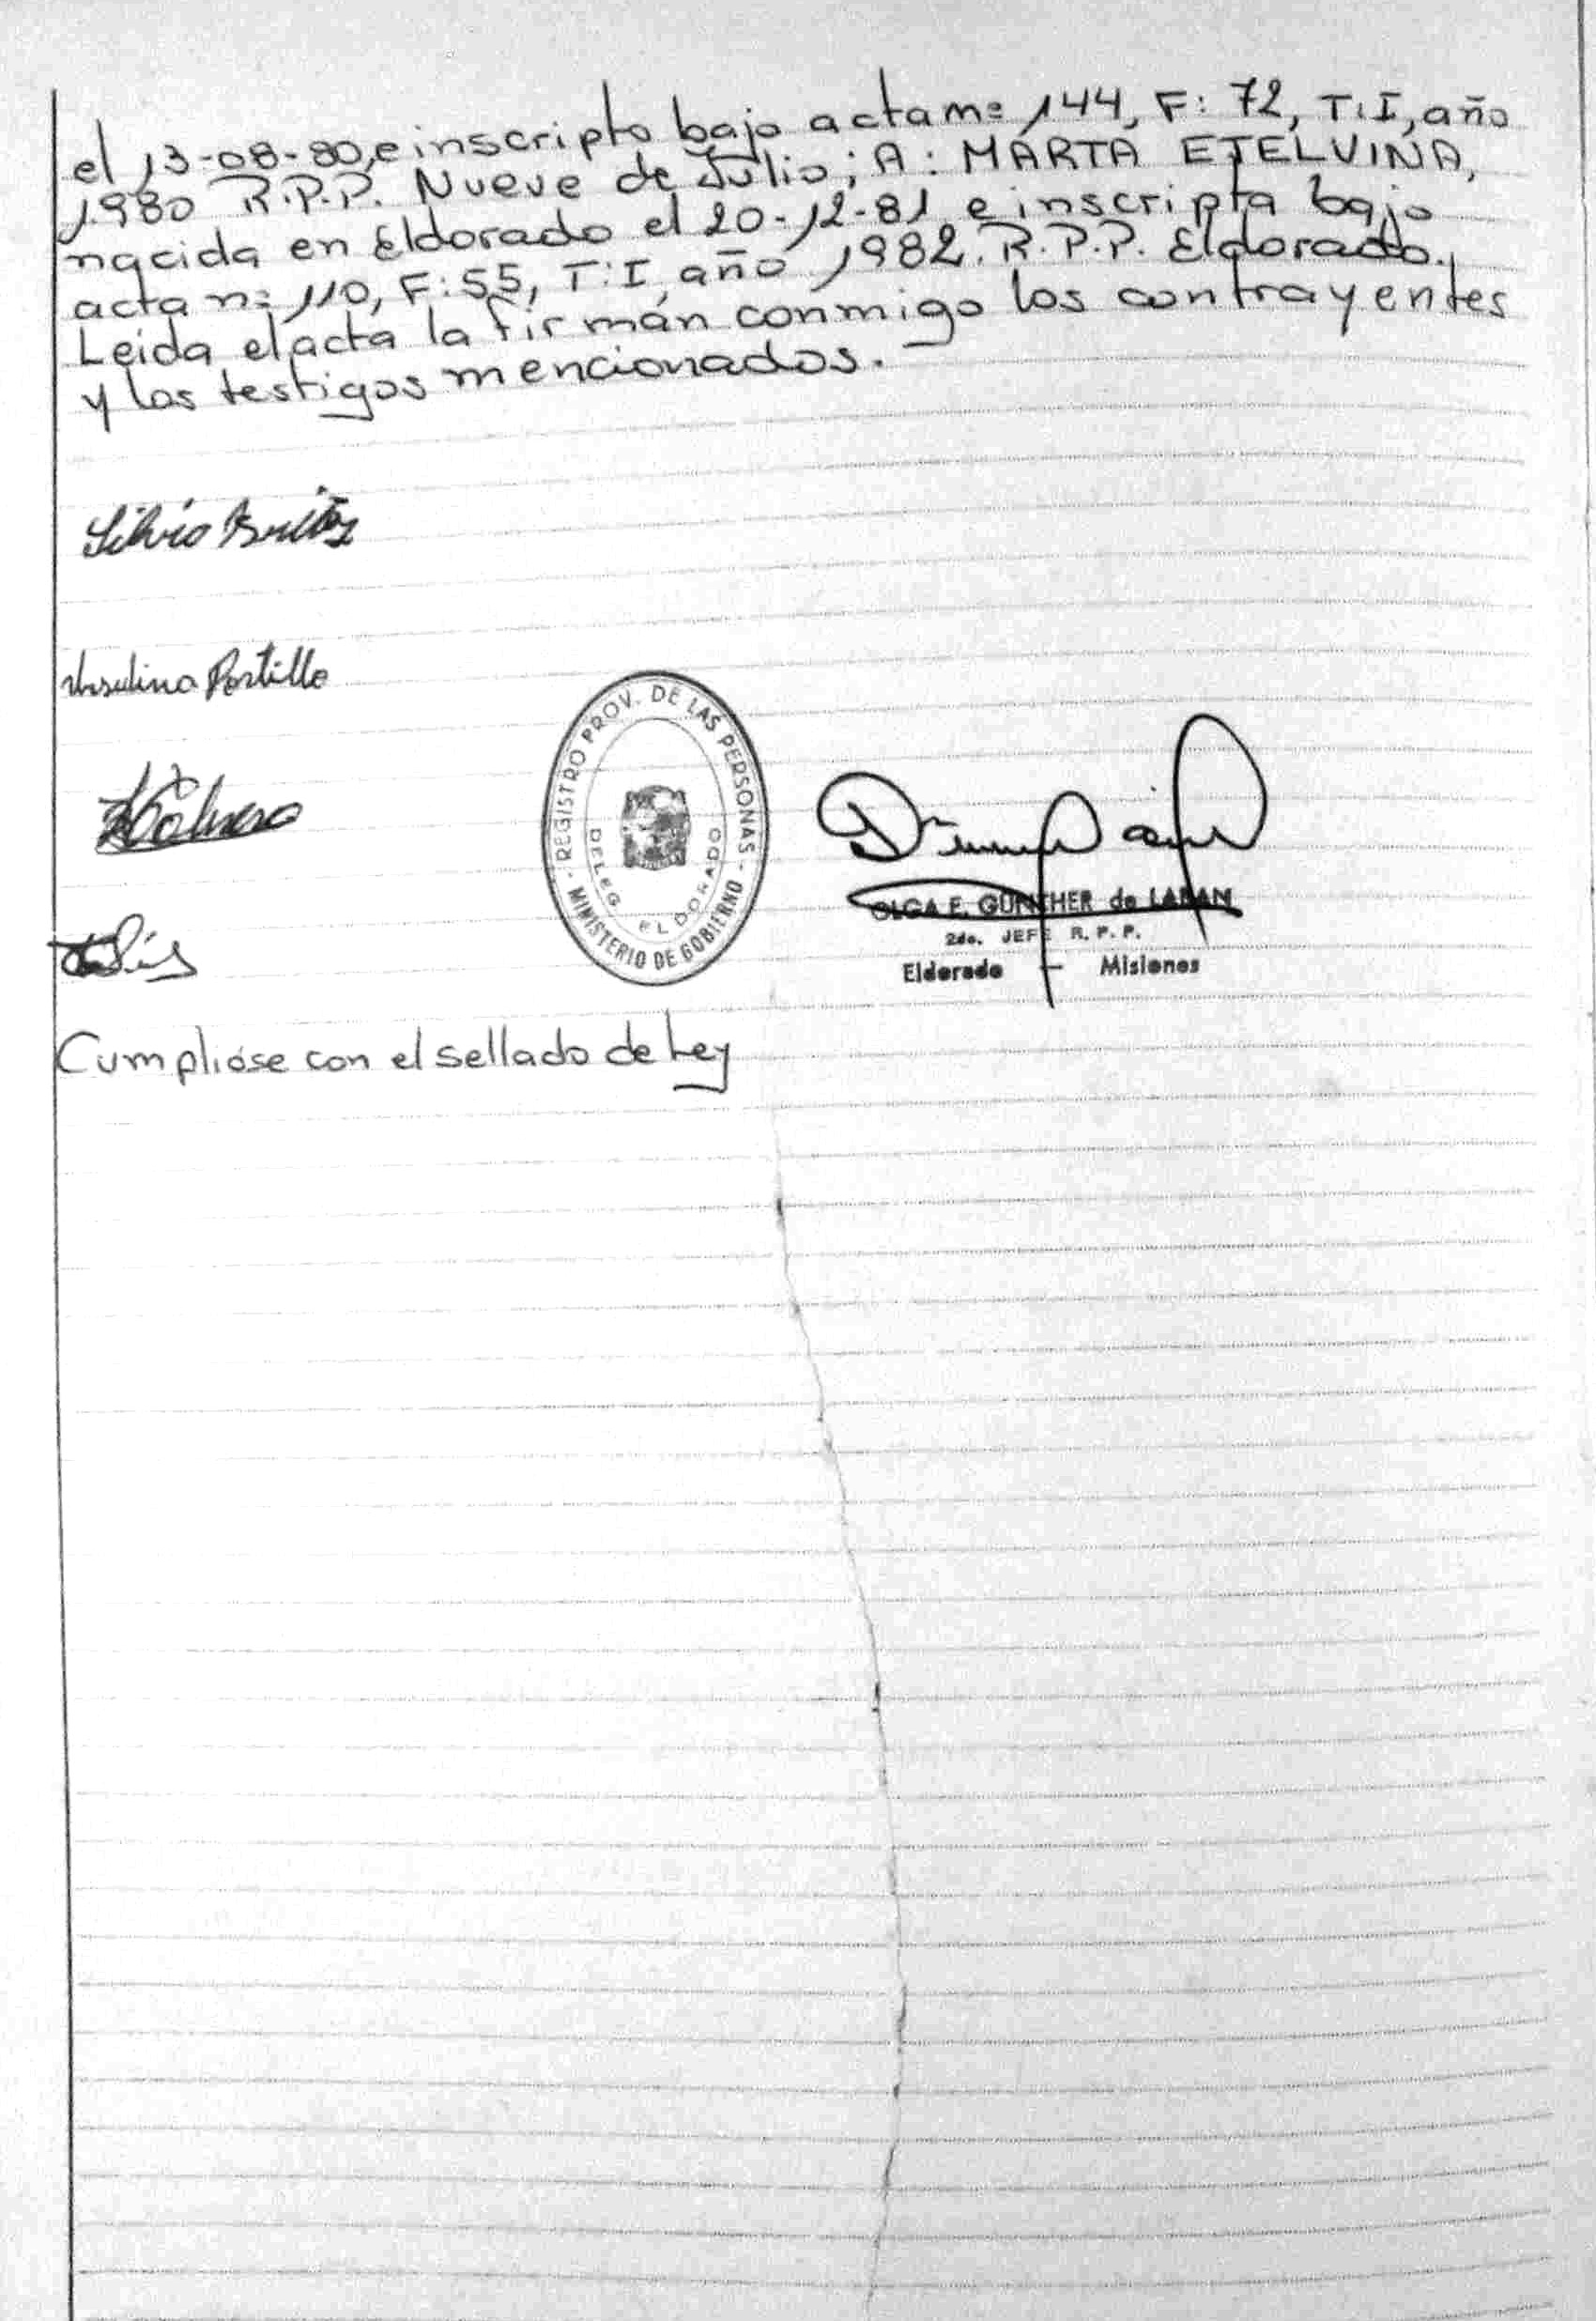 el 13-08-80, e inscripto bajo acta n= 144, F: 72, T:I, año
1980 R.P.P. Nueve de Julio; A: MARTA ETELVINA,
nacida en Eldorado el 20-12-81, e inscripta bajo
acta n= 110, F:55, T:I, año 1982. R.P.P. Eldorado.
Leida el acta la firmán conmigo los contrayentes
y los testigos mencionados.
Silvio Britez
Ursulina Portillo
REGISTRO PROV. DE LAS PERSONAS - MINISTERIO DE GOBIERNO -
DELEG. ELDORADO
OLGA E. GUNTHER de LABAN
2do. JEFE R. P. P.
Eldorado - Misiones
Cumplióse con el sellado de Ley